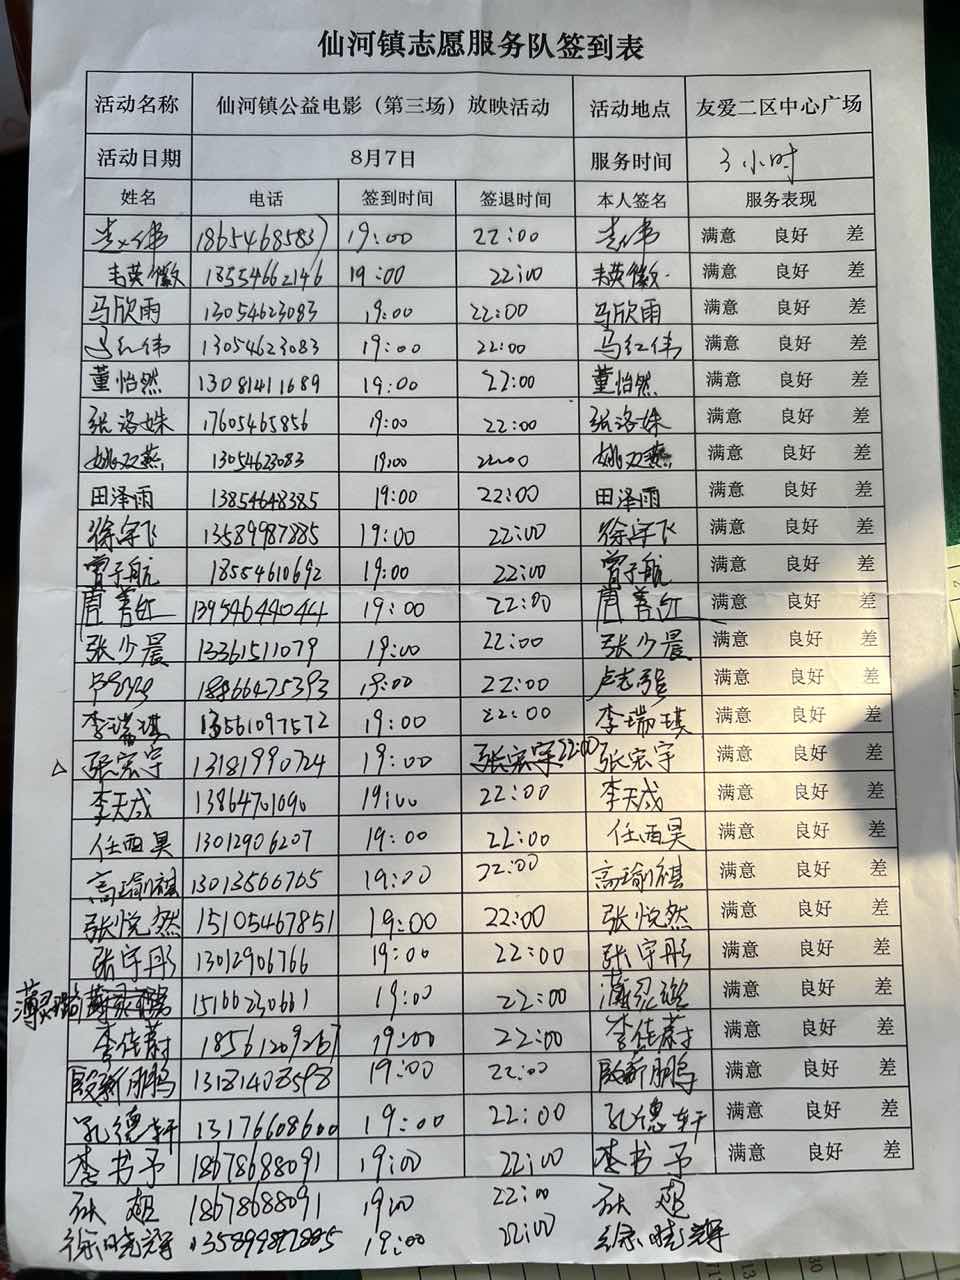 仙河镇志愿服务队签到表
活动名称 仙河镇公益电影（第三场）放映活动 活动地点 友爱二区中心广场
活动日期 8月7日 服务时间 3小时
姓名 电话 签到时间 签退时间 本人签名 服务表现
18654685837 19:00 22:00 满意 良好 差
韦英徽 13554662146 19:00 22:00 韦英徽 满意 良好 差
马欣雨 13054623083 19:00 22:00 马欣雨 满意 良好 差
马红伟 13054623083 19:00 22:00 马红伟 满意 良好 差
董怡然 13081411689 19:00 22:00 董怡然 满意 良好 差
张洛姝 17605465856 19:00 22:00 张洛姝 满意 良好 差
姚双燕 13054623083 19:00 22:00 姚双燕 满意 良好 差
田泽雨 13854648385 19:00 22:00 田泽雨 满意 良好 差
徐宇飞 13589987885 19:00 22:00 徐宇飞 满意 良好 差
曾子航 18554610692 19:00 22:00 曾子航 满意 良好 差
周善红 13954644044 19:00 22:00 周善红 满意 良好 差
张少晨 13361511079 19:00 22:00 张少晨 满意 良好 差
卢志强 18866475393 19:00 22:00 卢志强 满意 良好 差
李瑞琪 13561097572 19:00 22:00 李瑞琪 满意 良好 差
△ 张宏宇 13181990724 19:00 张宏宇 22:00 张宏宇 满意 良好 差
李天成 13864701090 19:00 22:00 李天成 满意 良好 差
任酉昊 13012906207 19:00 22:00 任酉昊 满意 良好 差
高瑜祺 13013566765 19:00 22:00 高瑜祺 满意 良好 差
张悦然 15105467851 19:00 22:00 张悦然 满意 良好 差
张宇彤 13012906766 19:00 22:00 张宇彤 满意 良好 差
15166230661 19:00 22:00 满意 良好 差
李佳蔚 18561209267 19:00 22:00 李佳蔚 满意 良好 差
殷新鹏 13181408598 19:00 22:00 殷新鹏 满意 良好 差
孔德轩 13176608600 19:00 22:00 孔德轩 满意 良好 差
李书予 18678688091 19:00 22:00 李书予 满意 良好 差
张超 18678688091 19:00 22:00 张超
徐晓辉 13589987885 19:00 22:00 徐晓辉